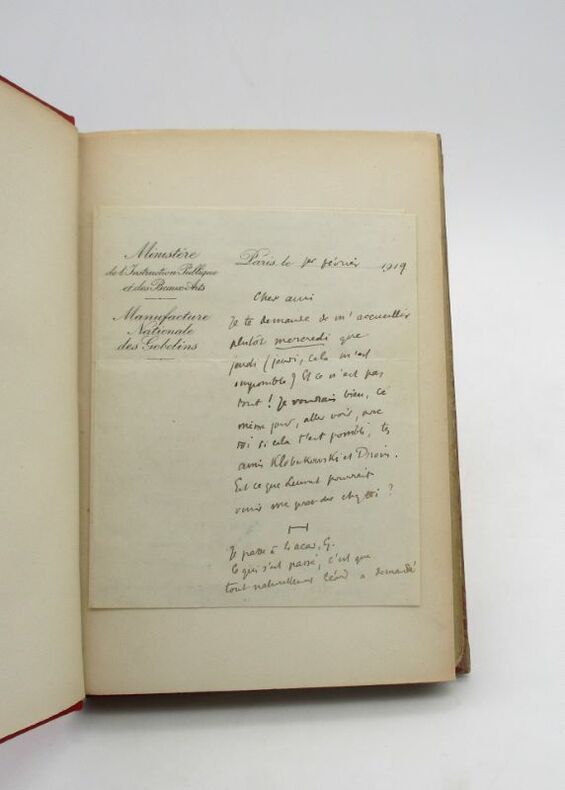 Ministère
de l'Instruction Publique
et des Beaux-Arts
Manufacture
Nationale
des Gobelins
Paris, le 1er février 1919
Cher ami
Je te demande de m'accueillir
plutôt mercredi que
jeudi (jeudi, cela m'est
impossible) Et ce n'est pas
tout ! Je voudrais bien, ce
même jour, aller voir, avec
toi si cela t'est possible, tes
amis Klobukowski et Drouin.
Est ce que pourrait
venir me prendre chez toi ?
Je passe à
Ce qui s'est passé, c'est que
tout naturellement a demandé